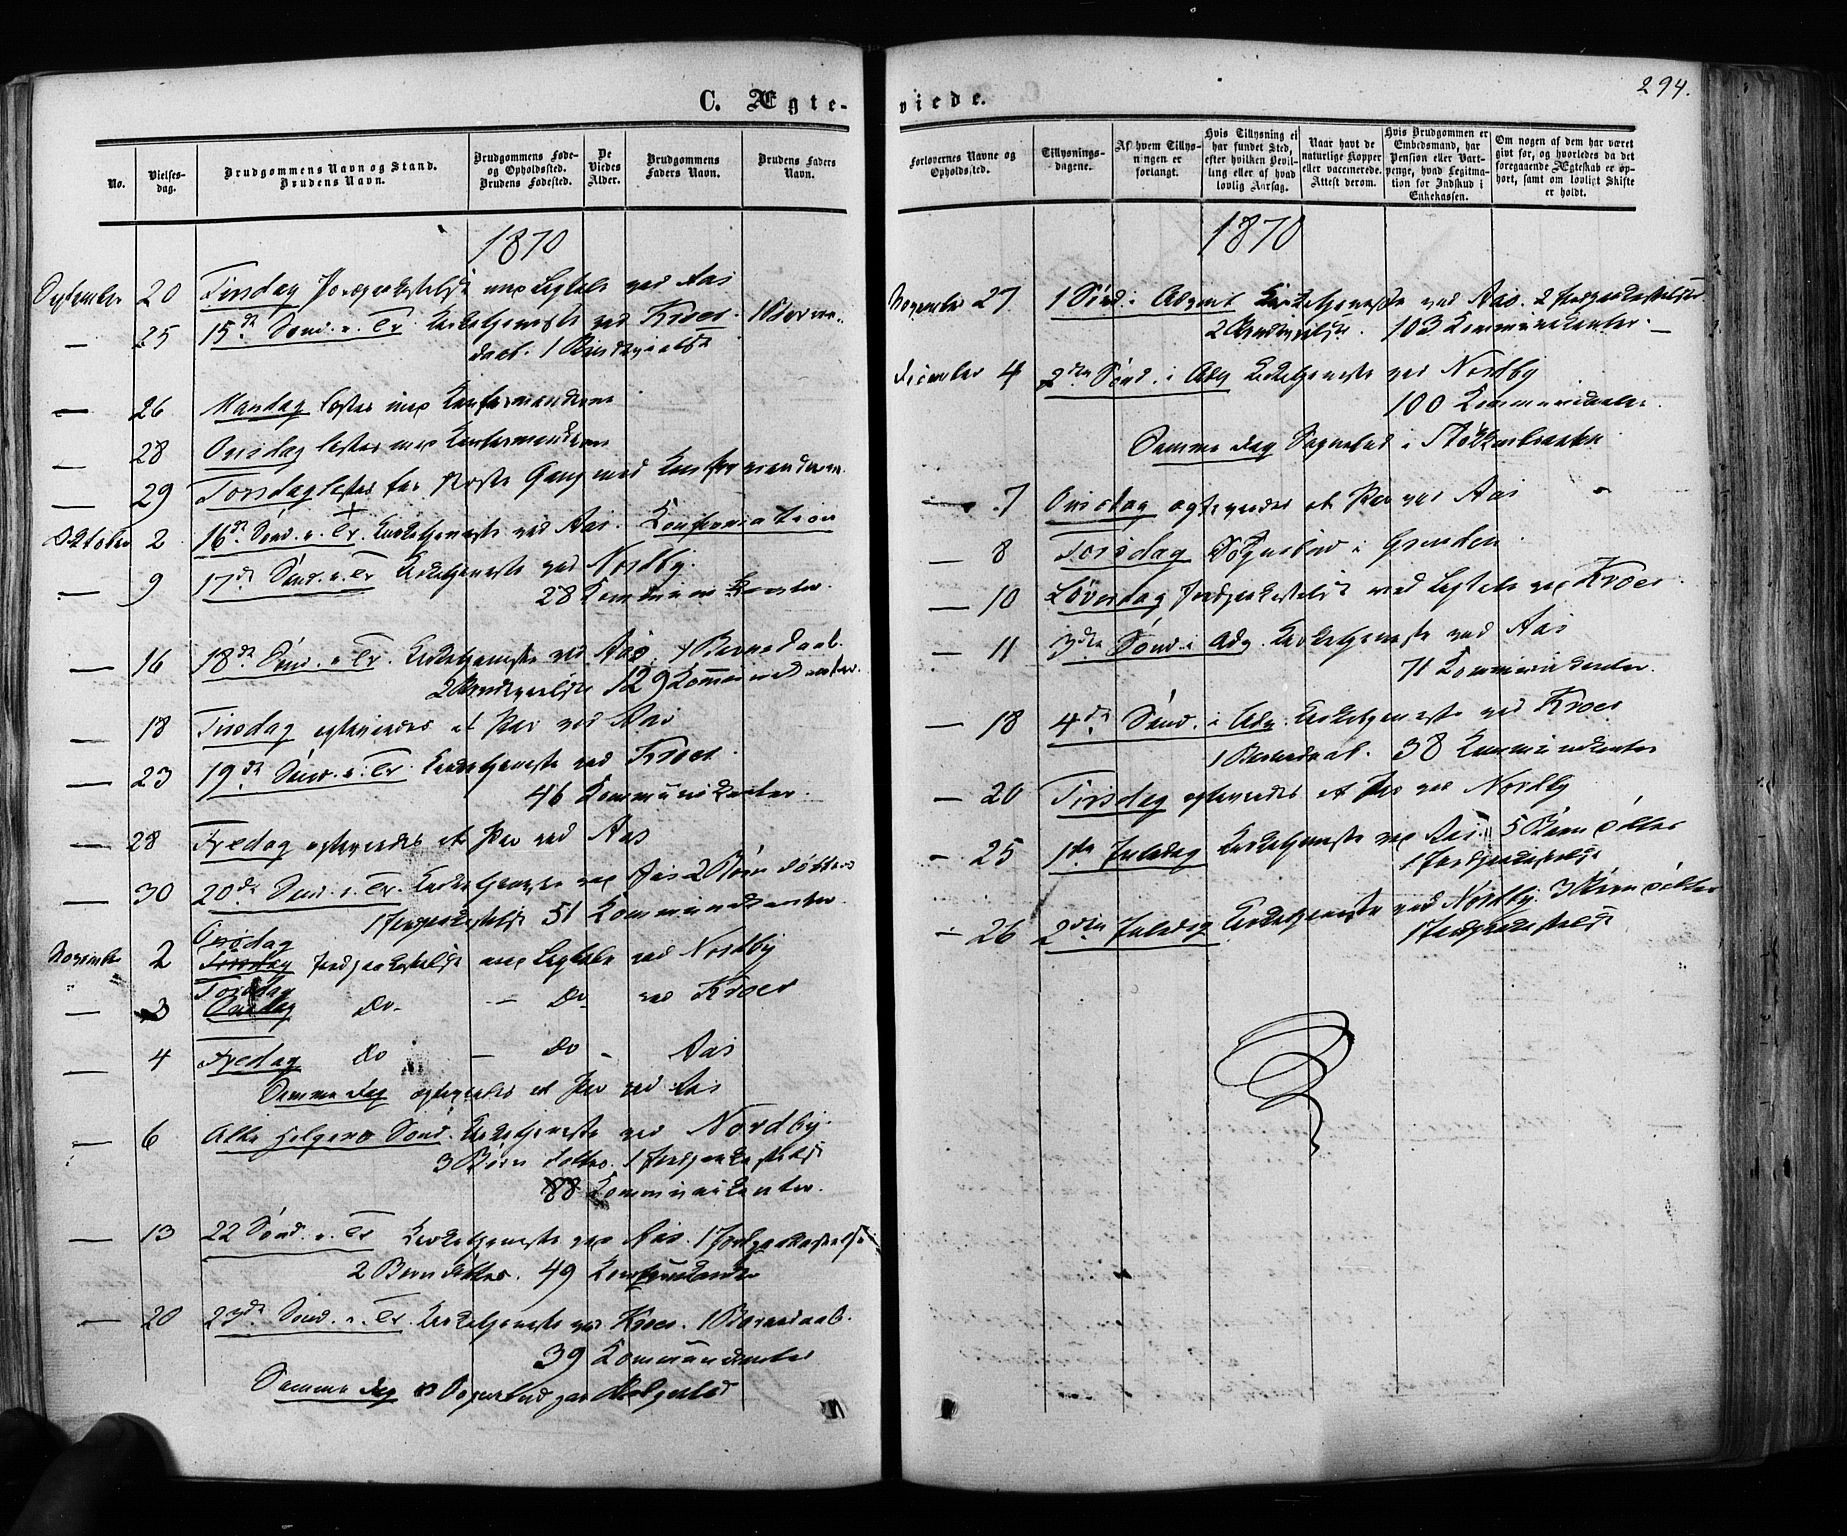 294.
C. Ægte-
viede.
No.
Vielses-
dag.
Brudgommens Navn og Stand.
Brudens Navn.
Brudgommens Føde-
og Opholdssted.
Brudens Fødested.
De
Viedes
Alder.
Brudgommens
Faders Navn.
Brudens Faders
Navn.
1870
September 20 Tirsdag med ved Aas
— 25 15de Sønd. e. Tr. Kirketjeneste ved Kroer. 1 Barne-
daab. 1 Brudevielse
— 26 Mandag læstes med Konfirmanderne
— 28 Onsdag læstes med Konfirmanderne
— 29 Torsdag læstes for Gang med Konfirmanderne.
Oktober 2 16de Sønd. e. Tr. Kirketjeneste ved Aas. Konfirmation
— 9 17de Sønd. e. Tr Kirketjeneste ved Nordby.
28 Kommunikanter.
— 16 18de Sønd. e. Tr. Kirketjeneste ved Aas. 1 Barnedaab.
2 Brudevielse 129 Kommunikanter.
— 18 Tirsdag ægteviedes et Par ved Aas
— 23 19de Sønd. e. Tr. Kirketjeneste ved Kroer.
46 Kommunikanter.
— 28 Fredag ægteviedes et Par ved Aas
— 30 20de Sønd. e. Tr. Kirketjeneste ved Aas 2 Børn døbtes
1 Jordpaakastelse 51 Kommunikanter.
Onsdag
November 2 Tirsdag Jordpaakastelse med ved Nordby
Torsdag
— 3 Onsdag Do — Do ved Kroer
— 4 Fredag Do — Do - Aas
Samme Dag ægteviedes et Par ved Aas
— 6 Alle Helgens Sønd. Kirketjeneste ved Nordby.
3 Børn døbtes. 1 Jordpaakastelse
88 Kommunikanter.
— 13 22 Sønd. e. Tr Kirketjeneste ved Aas. 1 Jordpaakastelse
2 Børn døbtes. 49
— 20 23de Sønd. e. Tr. Kirketjeneste ved Kroer. 1 Barnedaab.
39 Kommunikanter
Samme Dag
Forlovernes Navne og
Opholdssted.
Tillysnings-
dagene.
Af hvem Tillys-
ningen er
forlangt.
Hvis Tillysning ei
har fundet Sted,
efter hvilken Bevil-
ling eller af hvad
lovlig Aarsag.
Naar havt de
naturlige Kopper
eller vaccinerede.
Attest derom.
Hvis Brudgommen er
Embedsmand, har
Pension eller Vart-
penge, hvad Legitima-
tion for Indskud i
Enkekassen.
Om nogen af dem har været
gift før, og hvorledes da det
foregaaende Ægteskab er op-
hørt, samt om lovligt Skifte
er holdt.
1870
November 27 1 Sønd. i Advent Kirketjeneste ved Aas. 2 Jordpaakastelser
2 Brudevielse. 103 Kommunikanter. —
December 4 2den Sønd. i Adv Kirketjeneste ved Nordby
100 Kommunikanter.
Samme Dag Sognebud i
— 7 Onsdag ægteviedes et Par ved Aas
— 8 Torsdag Sognebud i
— 10 Løverdag Jordpaakastelse med ved Kroer
— 11 3die Sønd. i Adv. Kirketjeneste ved Aas
71 Kommunikanter.
— 18 4de Sønd. i Adv. Kirketjeneste ved Kroer
1 Barnedaab. 38 Kommunikanter
— 20 Tirsdag ægteviedes et Par ved Nordby
- 25 1ste Juledag Kirketjeneste ved Aas. 5 Børn døbtes
1 Jordpaakastelse
- 26 2den Juledag Kirketjeneste ved Nordby. 3 Børn døbtes
1 Jordpaakastelse